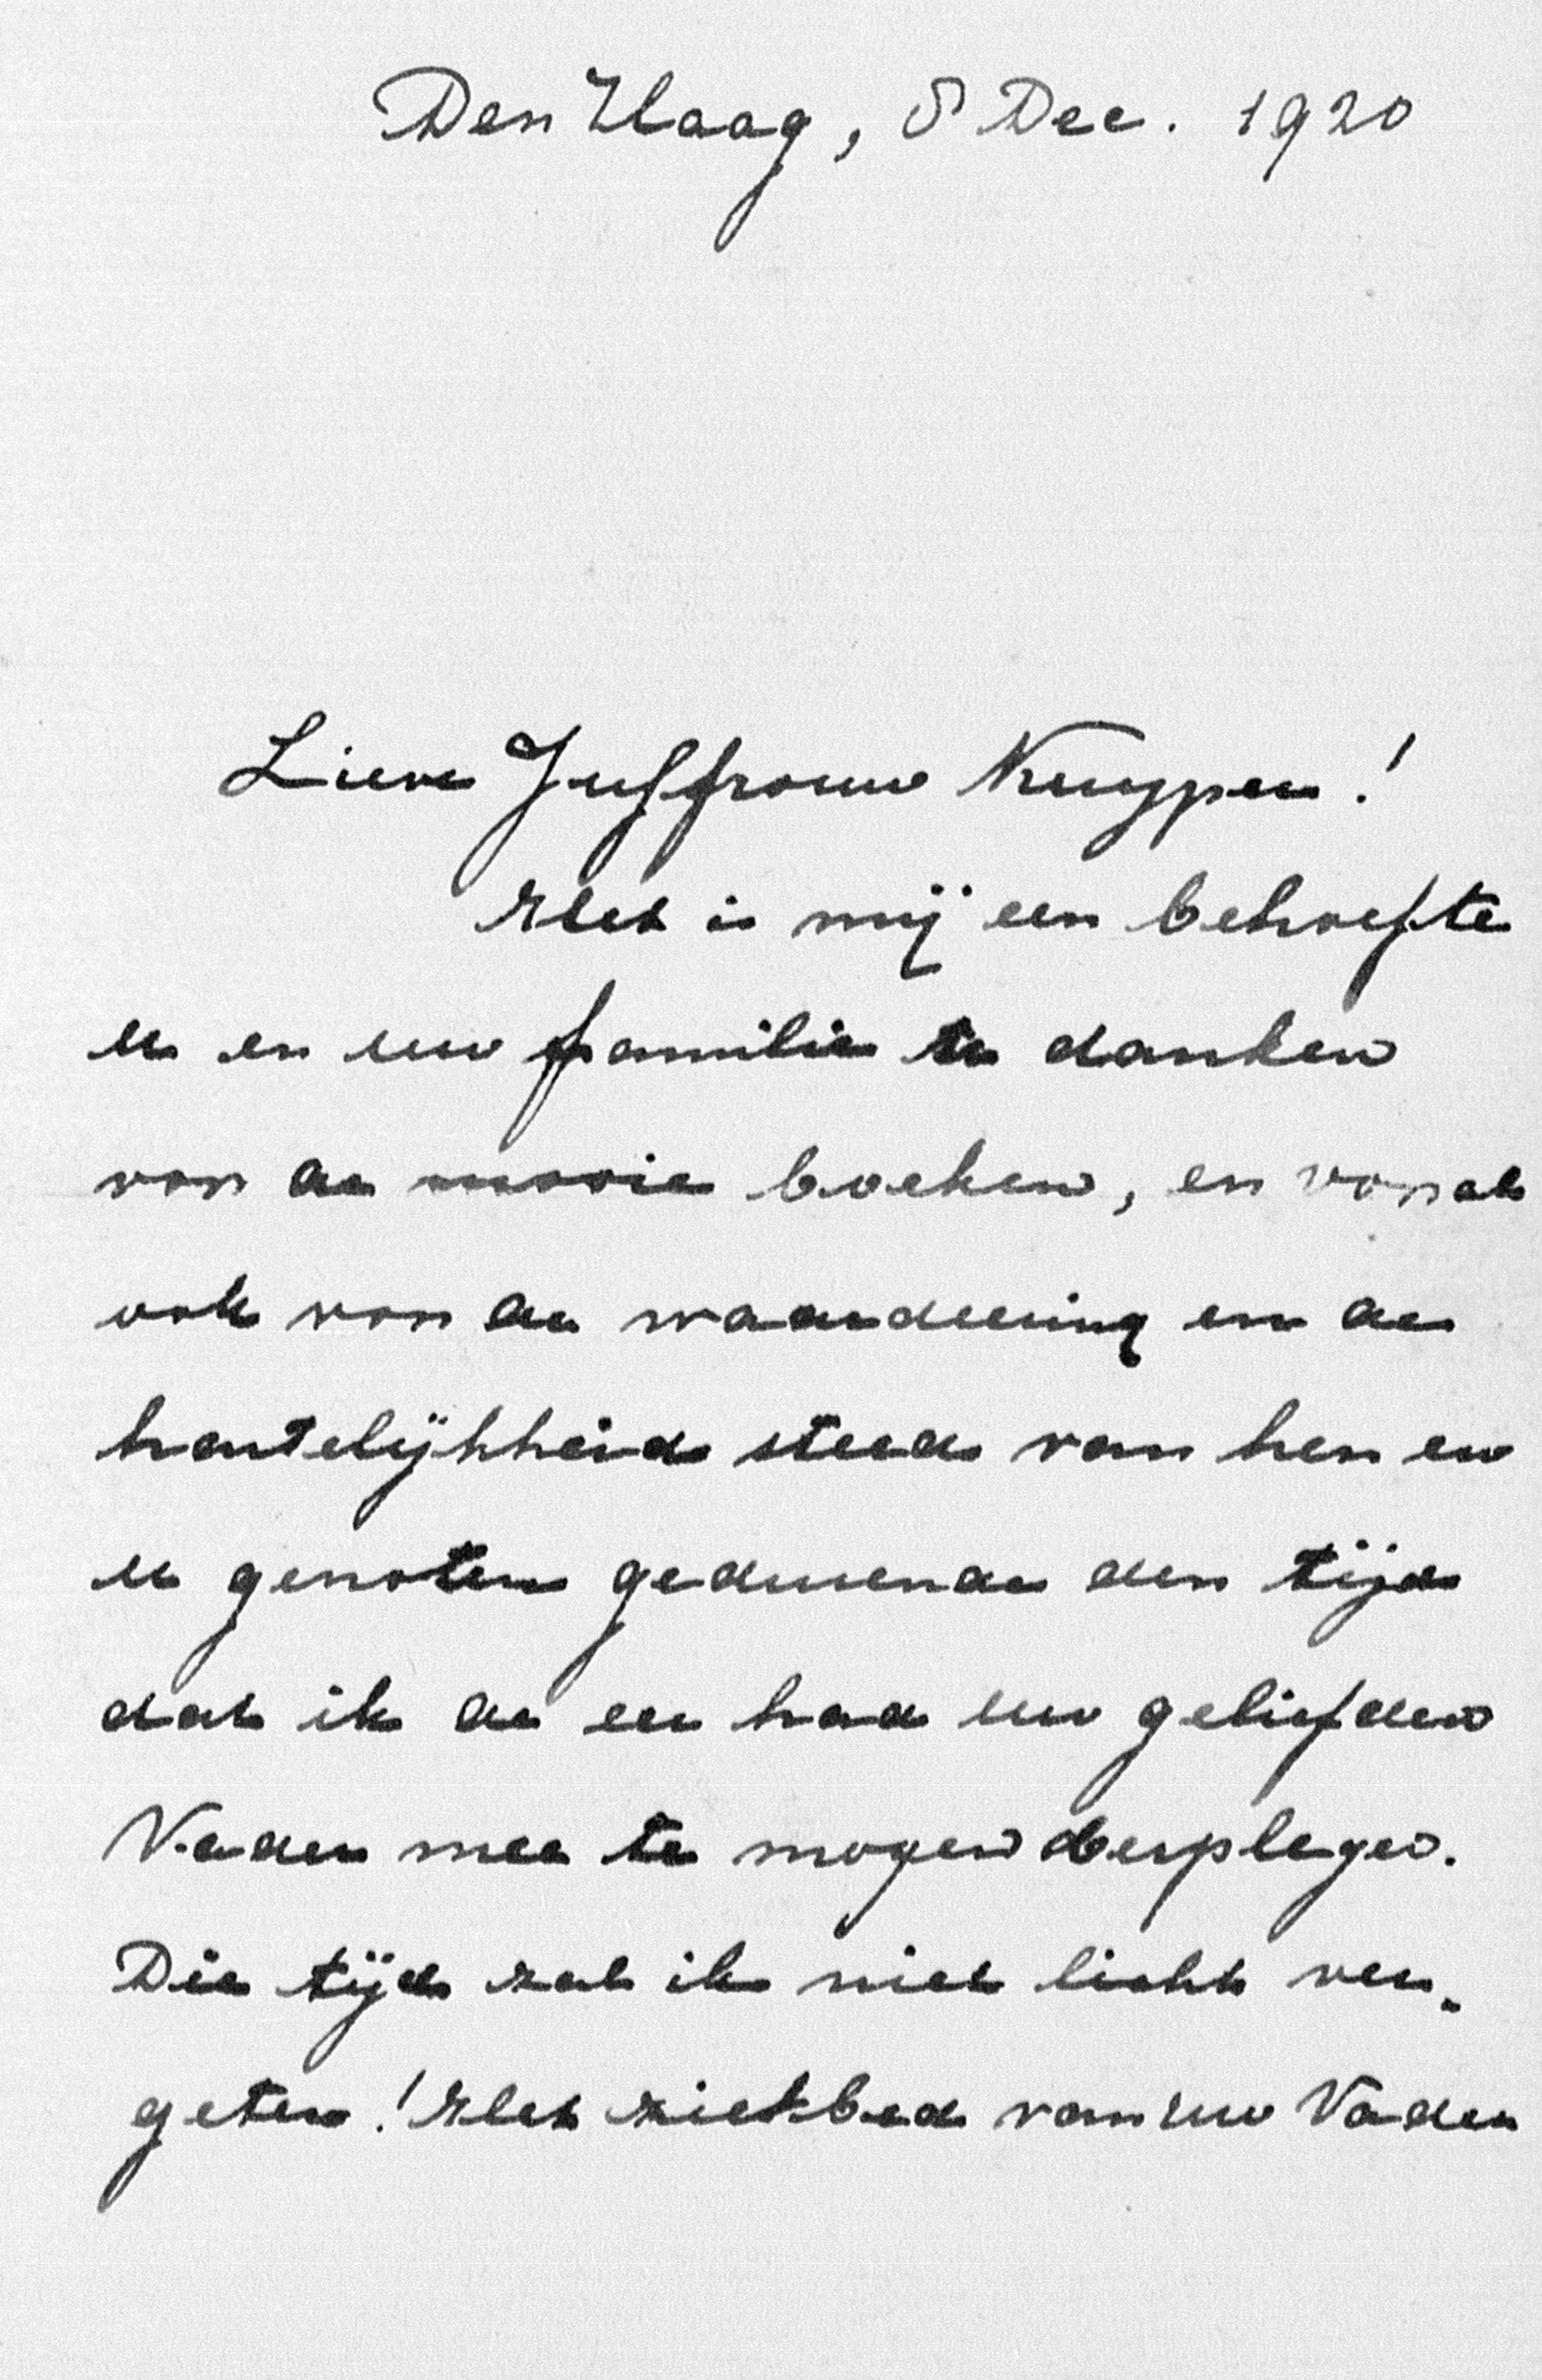 Den Haag, 8 Dec. 1920
Lieve Juffrouw Kuyper!
Het is mij een behoefte
u en uw familie te danken
voor de mooie boeken, en vooral
ook voor de waardeering en de
hartelijkheid steeds van hen en
u genoten gedurende den tijd
dat ik de eer had uw geliefden
Vader mee te mogen verplegen.
Die tijd zal ik niet licht ver-
geten! Het ziekbed van uw Vader